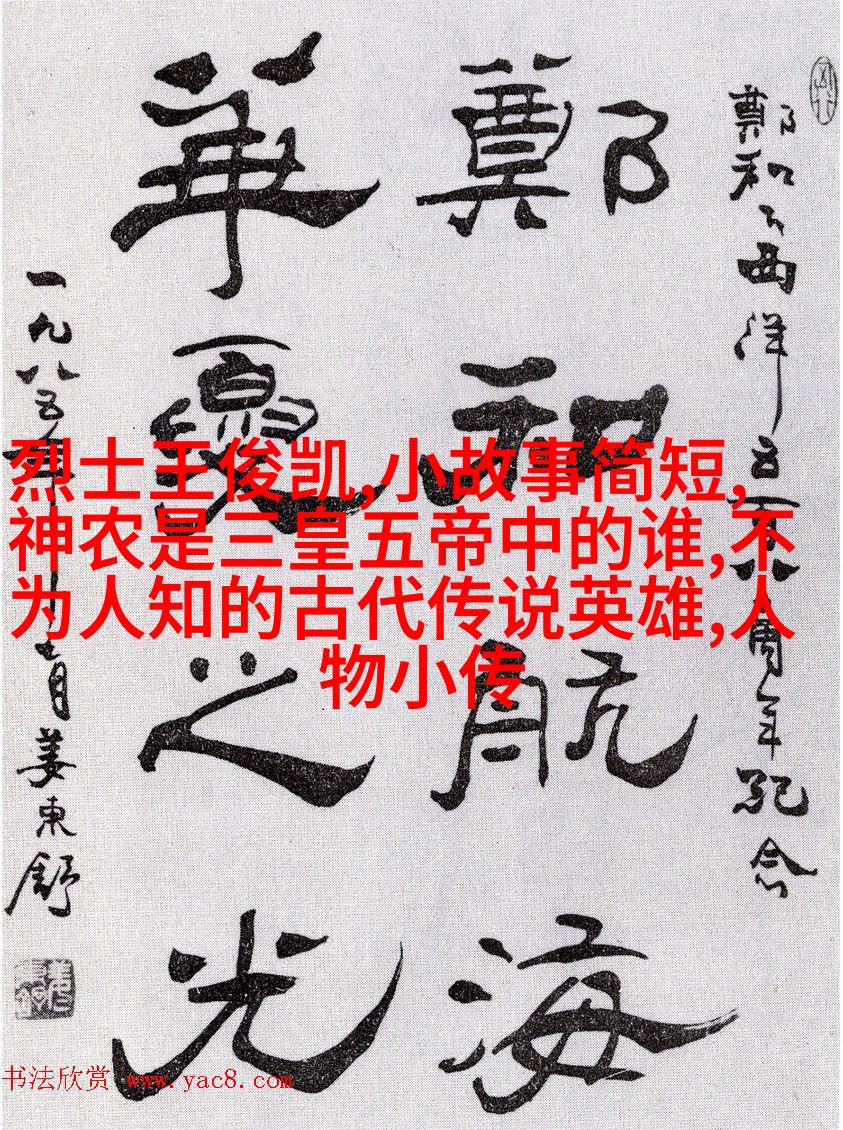 鄭和下西洋五百八周年紀念
鄭和航海
華夏之光
一九八五年
月姜東舒
烈士王俊凯,小故事简短,
神农是三皇五帝中的谁,不
为人知的古代传说英雄,人
物小传
书法欣赏 www.yac8.com